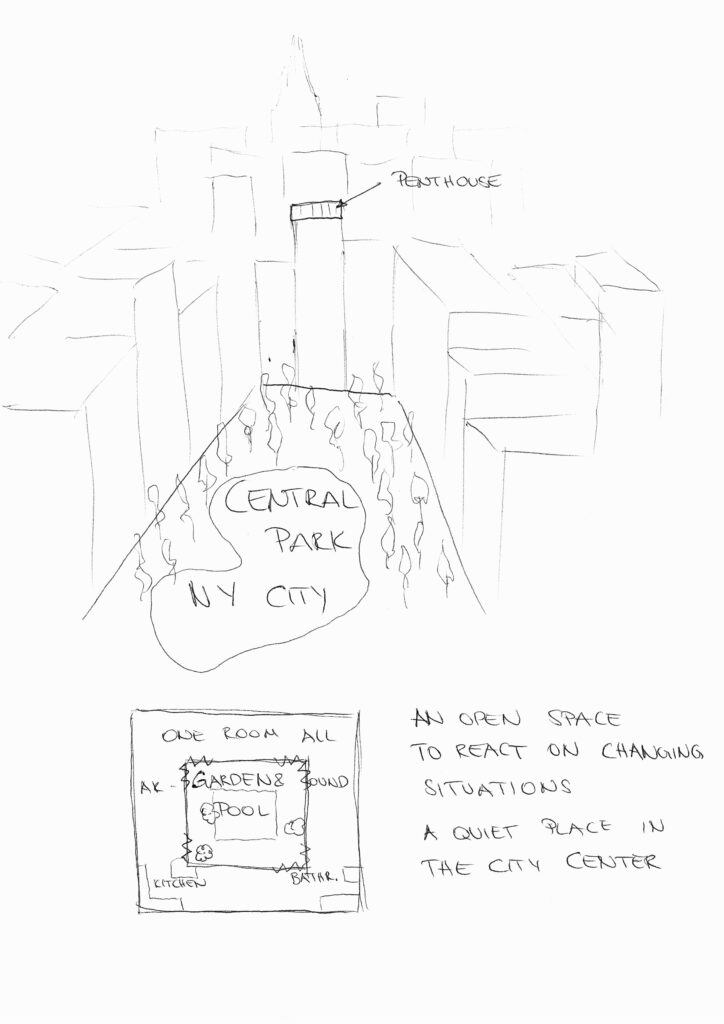 PENTHOUSE
CENTRAL
PARK
NY CITY
ONE ROOM ALL
AR - OUND
GARDEN &
POOL
KITCHEN
BATHR.
AN OPEN SPACE
TO REACT ON CHANGING
SITUATIONS
A QUIET PLACE IN
THE CITY CENTER